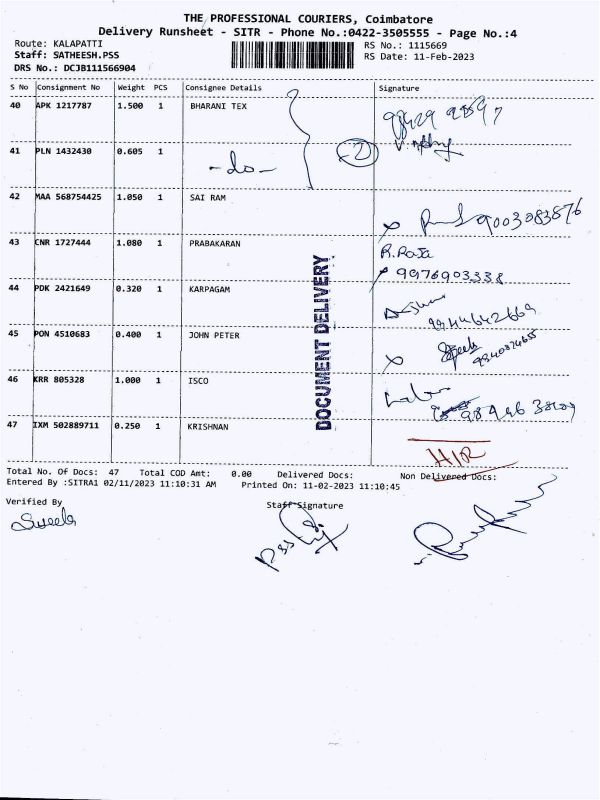 THE PROFESSIONAL COURIERS, Coimbatore
Delivery Runsheet - SITR - Phone No.:0422-3505555 - Page No.:4
Route: KALAPATTI
Staff: SATHEESH.PSS
DRS No.: DCJB111566904
RS No.: 1115669
RS Date: 11-Feb-2023
S No Consignment No Weight PCS Consignee Details Signature
40 APK 1217787 1.500 1 BHARANI TEX
41 PLN 1432430 0.605 1 -do- 2
42 MAA 568754425 1.050 1 SAI RAM 9003083876
43 CNR 1727444 1.080 1 PRABAKARAN R.Raja
9976903338
44 PDK 2421649 0.320 1 KARPAGAM
45 PON 4510683 0.400 1 JOHN PETER
46 KRR 805328 1.000 1 ISCO
47 IXM 502889711 0.250 1 KRISHNAN
DOCUMENT DELIVERY
Total No. Of Docs: 47 Total COD Amt: 0.00 Delivered Docs: Non Delivered Docs:
Entered By :SITRA1 02/11/2023 11:10:31 AM Printed On: 11-02-2023 11:10:45
Verified By
Staff Signature
PSS